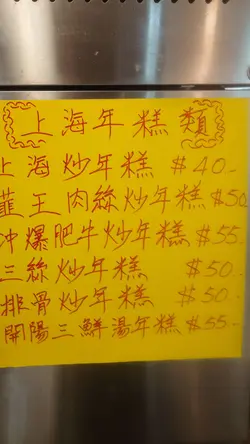 上海年糕類
上海炒年糕 $40-
韮王肉絲炒年糕 $50
冲爆肥牛炒年糕 $55
三絲炒年糕 $50-
排骨炒年糕 $50-
開陽三鮮湯年糕 $55-